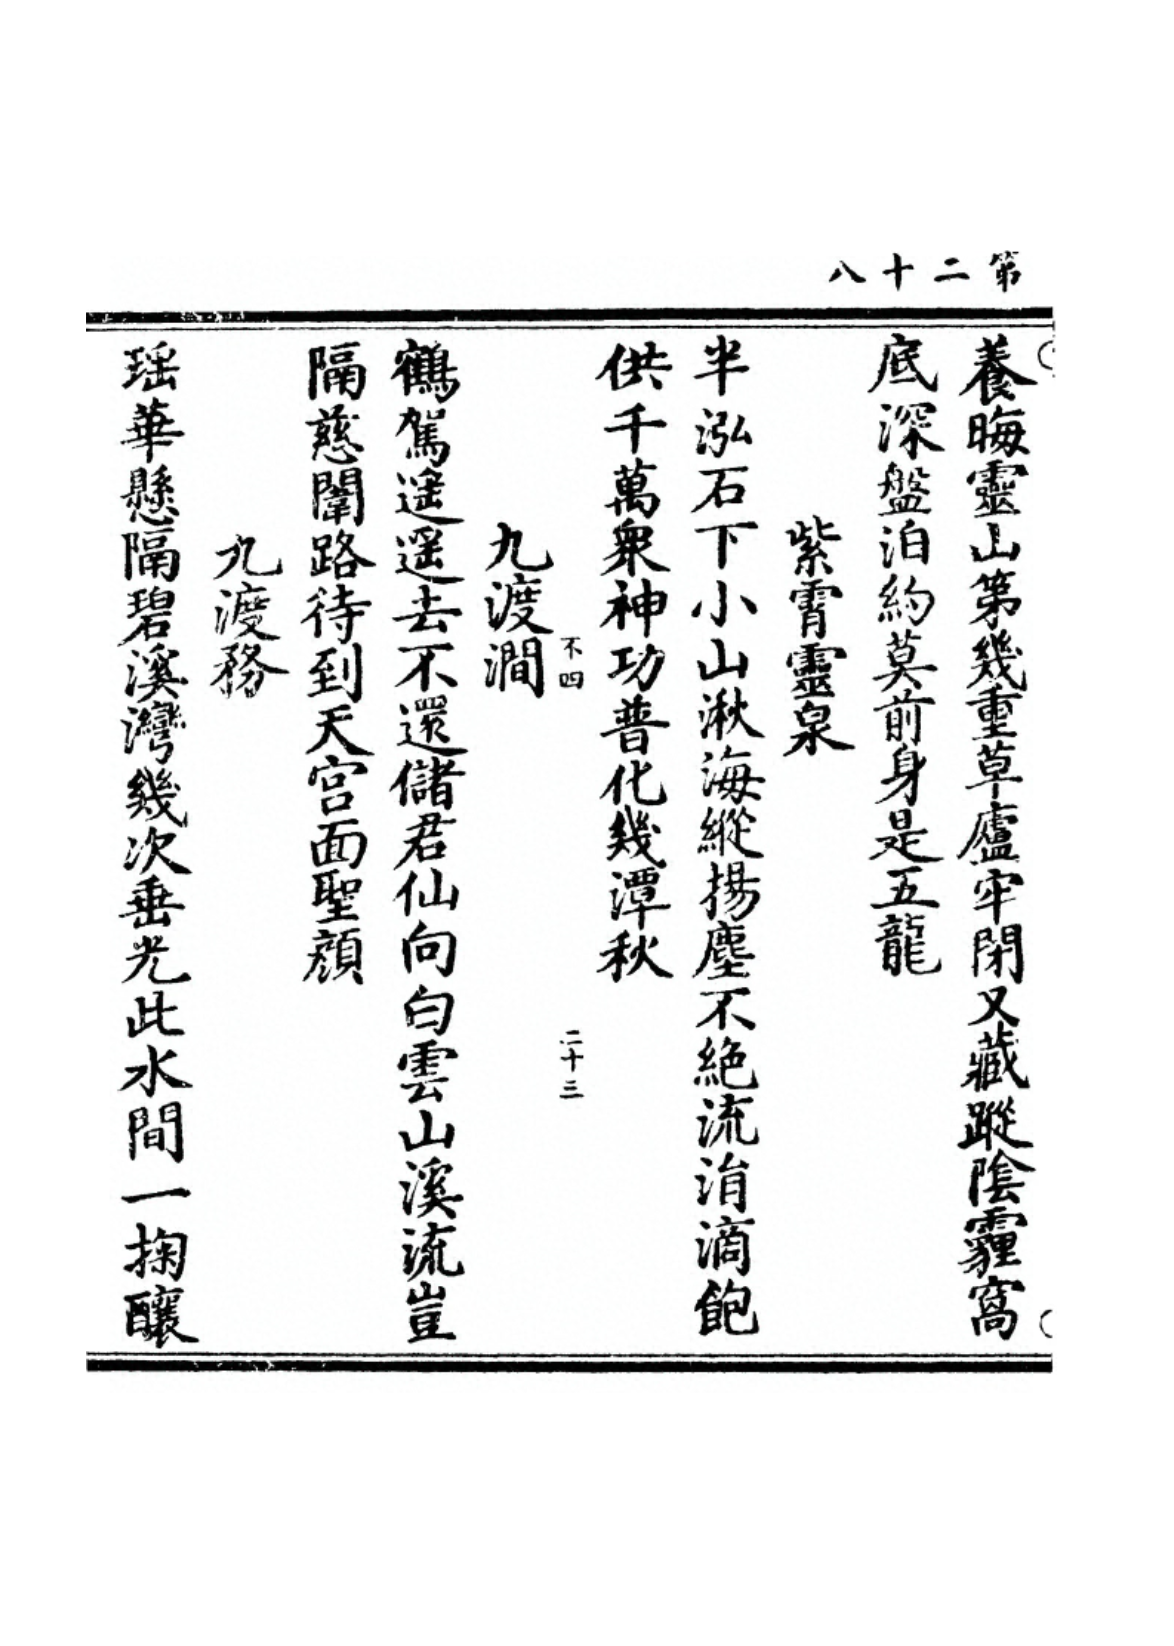 第二十八
養晦靈山第幾重草廬牢閉又藏蹤陰霾窩
底深盤泊約莫前身是五龍
紫霄靈泉
半泓石下小山湫海縱揚塵不絕流涓滴飽
供千萬衆神功普化幾潭秋
不四 二十三
九渡澗
鶴駕遥遥去不還儲君仙向白雲山溪流豈
隔慈闈路待到天宮面聖顔
九渡務
瑶華懸隔碧溪灣幾次垂光此水間一掬釀